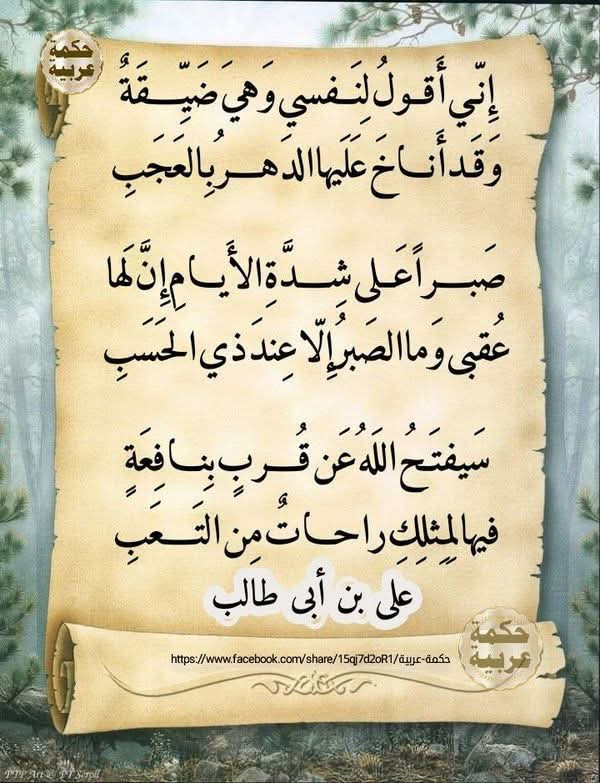 حكمة
عربية
إِنّي أَقولُ لِنَفسي وَهيَ ضَيِّقَةٌ
وَقَد أَناخَ عَلَيها الدَهرُ بِالعَجَبِ
صَبراً عَلى شِدَّةِ الأَيامِ إِنَّ لَها
عُقبى وَما الصَبرُ إِلّا عِندَ ذي الحَسَبِ
سَيفتَحُ اللَهُ عَن قُربٍ بِنافِعَةٍ
فيها لِمِثلِكِ راحاتٌ مِنَ التَعَبِ
على بن أبى طالب
حكمة
عربية
https://www.facebook.com/share/15qj7d2oR1/حكمة-عربية
PTP Art @ PT Scroll